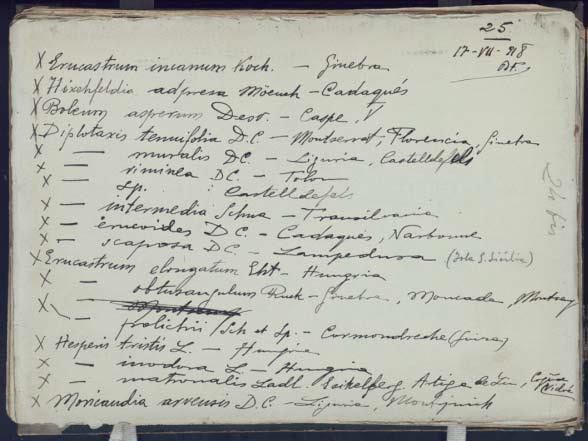 25
17-VII-918
X Erucastrum incanum Koch. — Ginebra
X Hirchfeldia adpresa Möench - Cadaqués
X Boleum asperum Desv. - Caspe, V
X Diplotaxis tenuifolia D.C. - Montserrat, Florencia, Ginebra
X — muralis DC - Liguria, Castelldefels
X — viminea DC - Tolon
X — sp. : Castelldefels
X — intermedia Schur - Transilvania
X — erucoides D.C. - Cadaqués, Narbonne
X — scaposa D.C - Lampedusa (Isla S. Sicilia)
X Erucastrum elongatum Eht - Hungria
X — obtusangulum Ruck - Ginebra, Moncada, Montgay
— frolichii Sch et Sp. - Cormondreche (Suiza)
X Hesperis tristis L. - Hungria
X — inodora L - Hungria
X — matronalis Ladl. Artiga de Lin,
X Moricandia arvensis D.C - Liguria, Montjuich